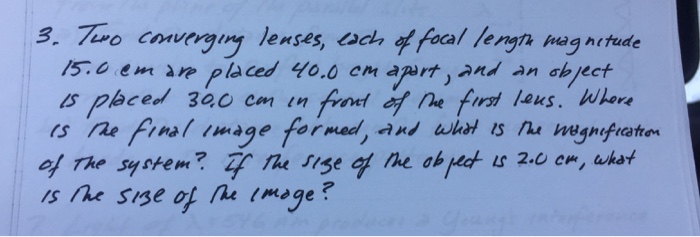 3. Two converging lenses, each of focal length magnitude
15.0 cm are placed 40.0 cm apart, and an object
is placed 30.0 cm in front of the first lens. Where
is the final image formed, and what is the magnification
of the system? If the size of the object is 2.0 cm, what
is the size of the image?